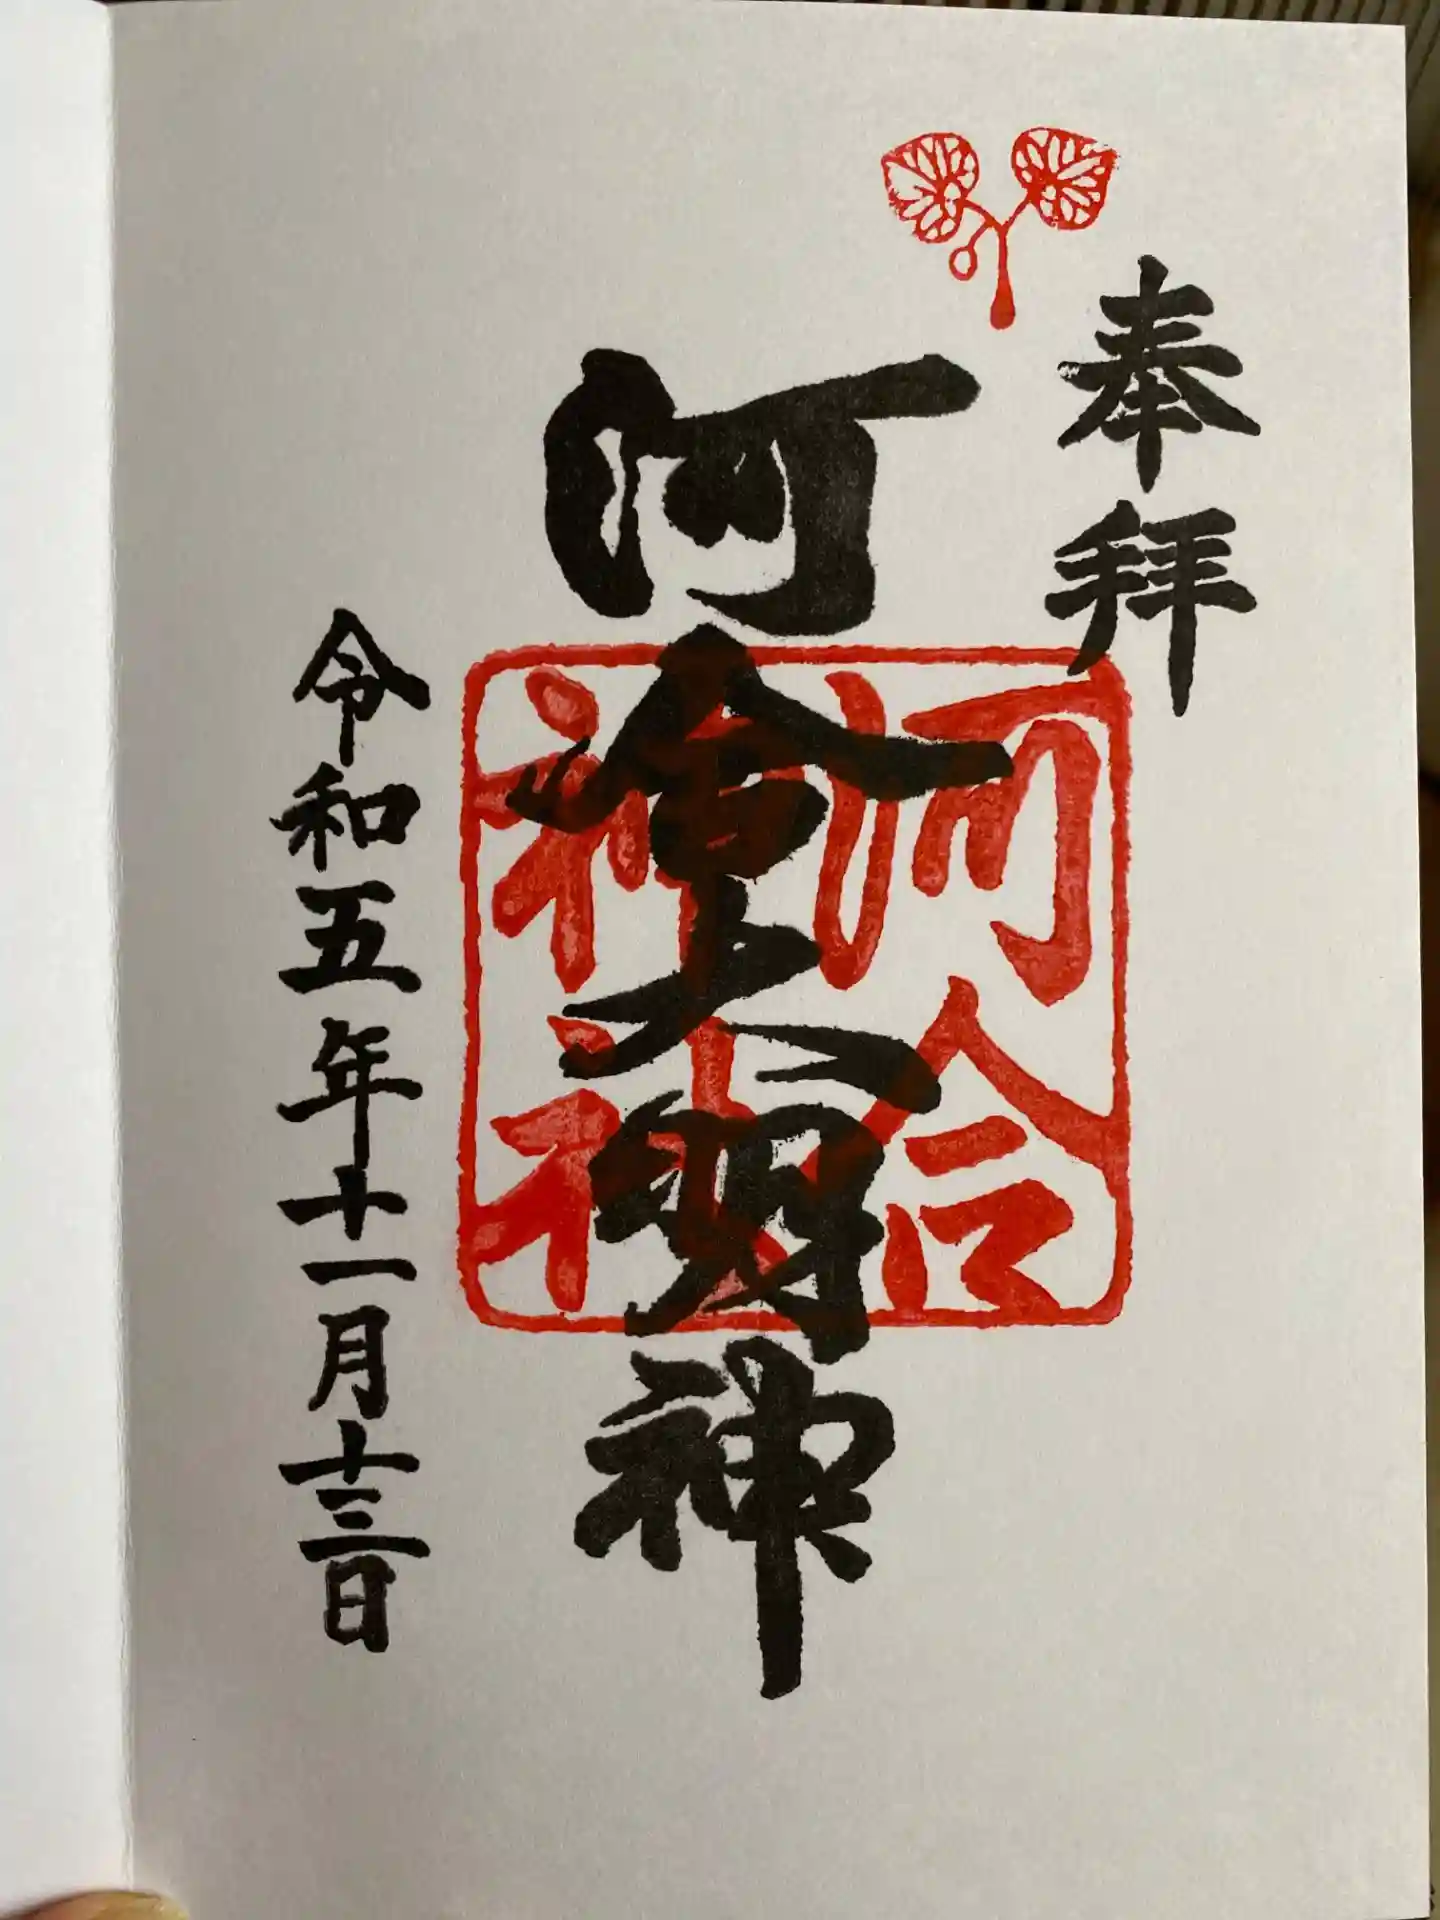 奉拝
河會大明神
河合
神社
令和五年十一月十三日